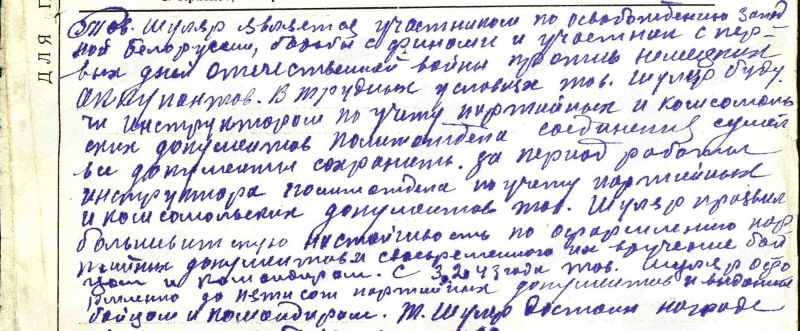 тов. Шуляр является участником по освобождению Запад
ной Белоруссии, борьбы с финами и участник с пер-
вых дней отечественной войны против немецких
оккупантов. В трудных условиях тов. Шуляр буду
чи инструктором по учету партийных и комсомоль
ских документов политотдела соединения сумел
все документы сохранить. За период работы
инструктора политотдела по учету партийных
и комсомольских документов тов. Шуляр проявил
большевитскую настойчивость по оформлению пар
тийных документов и своевременного их вручение бой
цам и командирам. С 3.2.43 года тов. Шуляр офо
рмленно до пятисот партийных документов и выданы
бойцам и командирам. Т. Шуляр достоин награде
ДЛЯ П